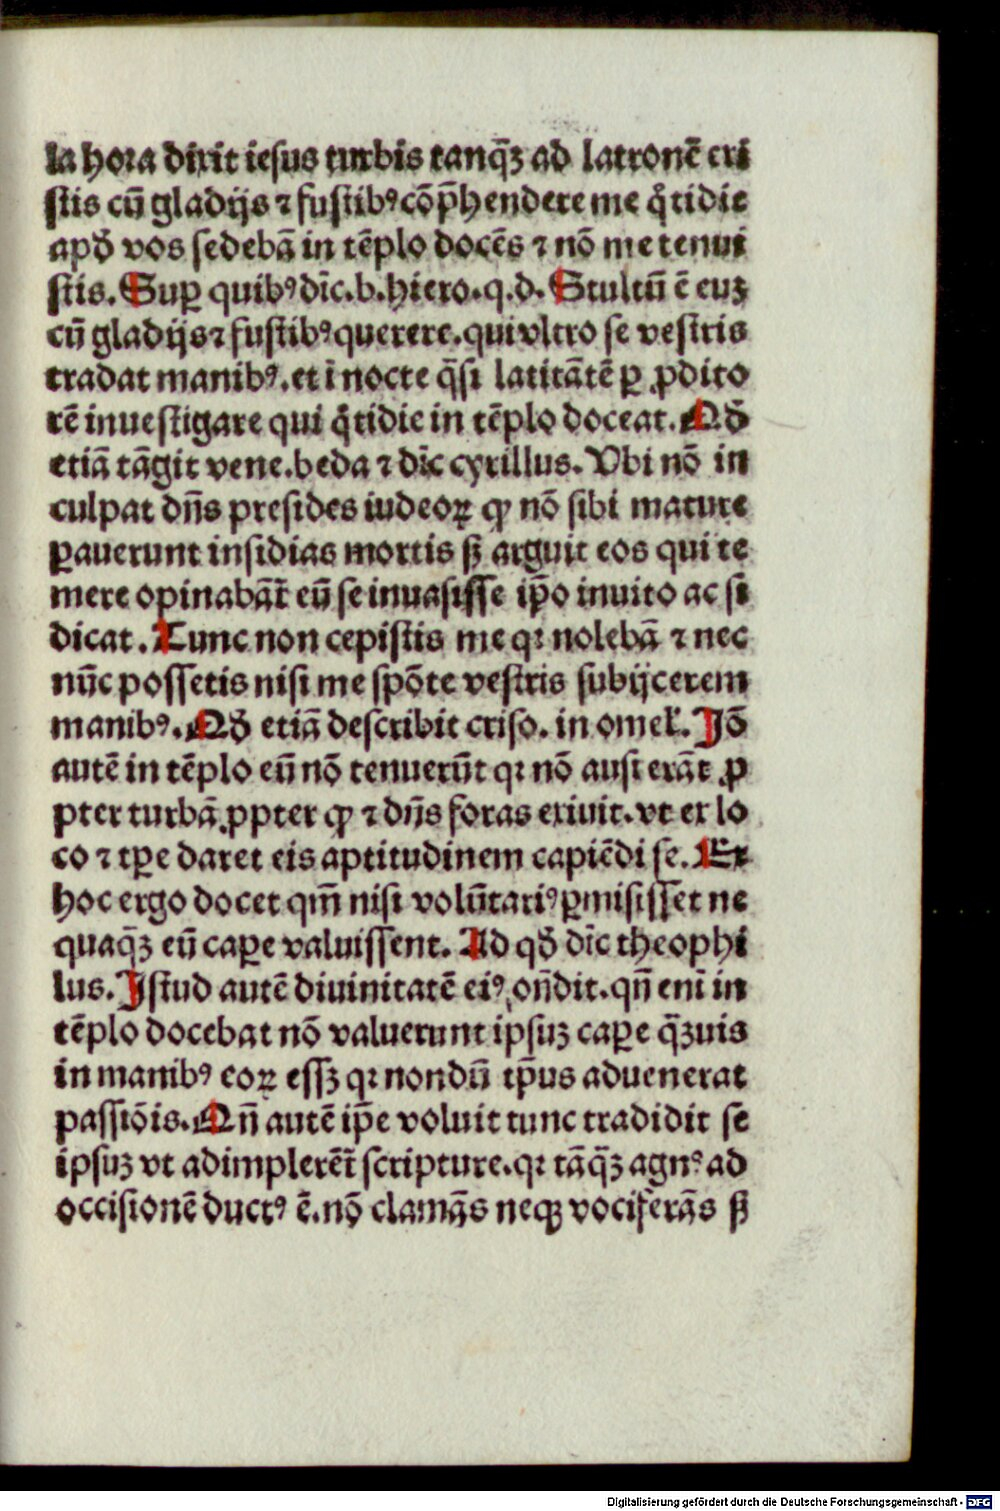 la hora dixit iesus turbis tanq̄ꝫ ad latronē exi
stis cū gladijs ⁊ fustibꝰ cōp̄hendere me q̇tidie
apđ vos sedebā in tēplo docēs ⁊ nō me tenui
stis. Suꝑ quibꝰ dīc. b. hiero. q. d. Stultū ē euꝫ
cū gladijs ⁊ fustibꝰ querere. qui vltro se vestris
tradat manibꝰ. et ī nocte q̄si latitātē ꝑ ꝓdito
rē inuestigare qui q̇tidie in tēplo doceat. Qđ
etiā tāgit vene. beda ⁊ dīc cyrillus. Vbi nō in
culpat dn̄s presides iudeoꝝ ꝙ nō sibi mature
ꝑauerunt insidias mortis sꝫ arguit eos qui te
mere opinabāt̄ eū se inuasisse ip̄o inuito ac si
dicat. Tunc non cepistis me qꝛ nolebā ⁊ nec
nūc possetis nisi me spōte vestris subijcerem
manibꝰ. Qđ etiā describit criso. in omel̛. Jō
autē in tēplo eū nō tenuerūt qꝛ nō ausi erāt ꝓ
pter turbā ꝓpter ꝙ ⁊ dn̄s foras exiuit. vt ex lo
co ⁊ tꝑe daret eis aptitudinem capiēdi se. Ex
hoc ergo docet qm̄ nisi volūtariꝰ ꝑmisisset ne
quaq̄ꝫ eū caꝑe valuissent. Ad qđ dīc theophi
lus. Jstud autē diuinitatē eiꝰ on̄dit. qn̄ eni in
tēplo docebat nō valuerunt ipsuꝫ caꝑe q̄ꝫuis
in manibꝰ eoꝝ essꝫ qꝛ nondū tp̄us aduenerat
passiōis. Qn̄ autē ip̄e voluit tunc tradidit se
ipsuꝫ vt adimplerēt̄ scripture. qꝛ tāq̄ꝫ agnꝰ ad
occisionē ductꝰ ē. nō clamās neqꝫ vociferās sꝫ
Digitalisierung gefördert durch die Deutsche Forschungsgemeinschaft - DFG